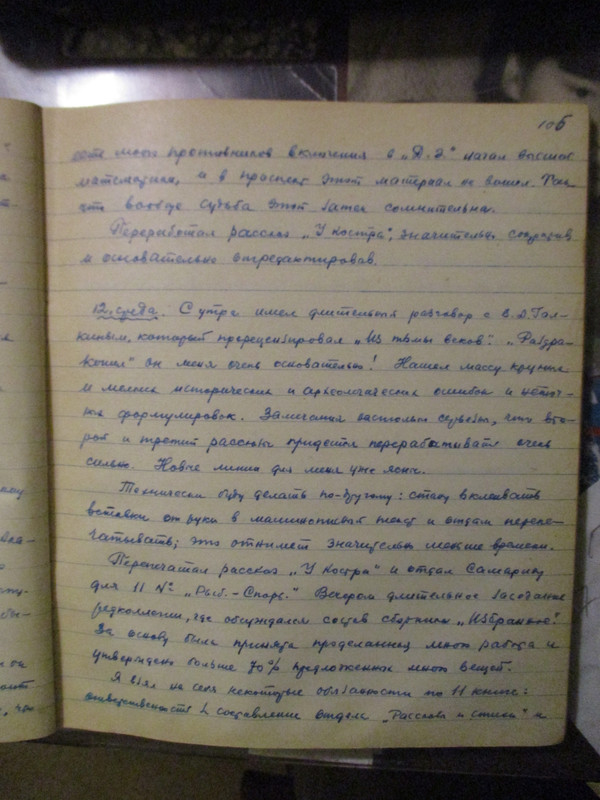 106
моих противников включения в „Д. З." начал высшей
математики, и в проспект этот материал не вошел. Так
что вообще судьба этой затеи сомнительна.
Переработал рассказ „У костра", значительно сократив
и основательно отредактировав.
12. среда. С утра имел длительный разговор с В. Д. Гал-
киным, который прорецензировал „Из тьмы веков". „Разура-
он меня очень основательно! Нашел массу крупных
и мелких исторических и археологических ошибок и неточ-
ных формулировок. Замечания настолько серьезны, что вто-
рой и третий рассказы придется перерабатывать очень
сильно. Новые линии для меня уже ясны.
Технически буду делать по-другому: стану вклеивать
вставки от руки в машинописный текст и отдам перепе-
чатывать; это отнимет значительно меньше времени.
Перепечатал рассказ „У костра" и отдал
для 11 № „Рыб.-Спорт." Вечером длительное заседание
редколлегии, где обсуждался состав сборника „Избранное".
За основу была принята проделанная мною работа и
утверждено больше 70% предложенных мною вещей.
Я взял на себя некоторые обязанности по 11 книге:
составление отдела „Рассказы и стихи" и